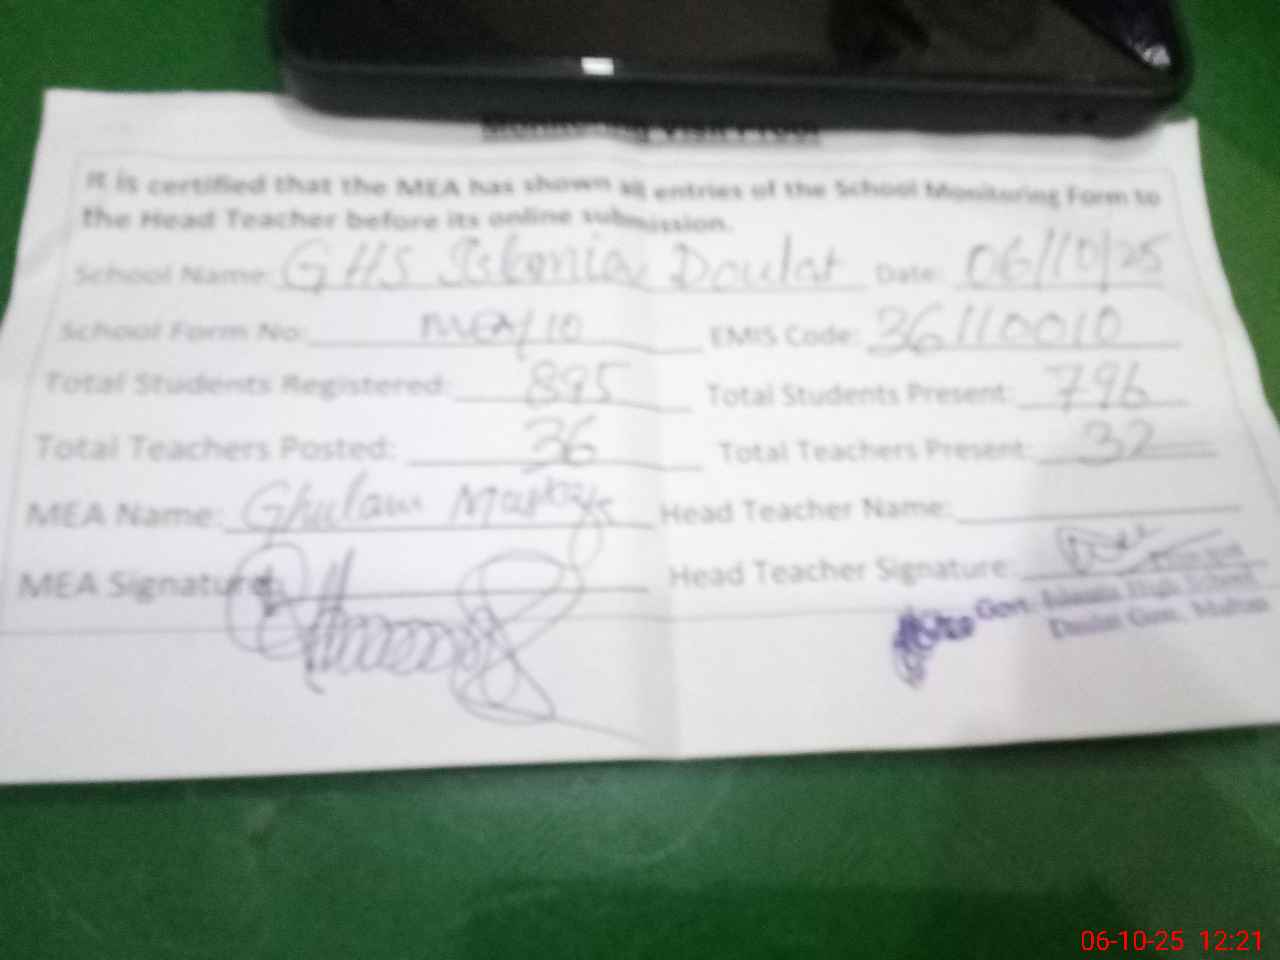 Monitoring Visit Proof
It is certified that the MEA has shown all entries of the School Monitoring Form to
the Head Teacher before its online submission.
School Name: GHS Islamia Doulat Date: 06/10/25
School Form No: MEA/10 EMIS Code: 36110010
Total Students Registered: 895 Total Students Present: 796
Total Teachers Posted: 36 Total Teachers Present: 32
MEA Name: Ghulam Head Teacher Name:
MEA Signature: Head Teacher Signature:
Govt: Islamia High School
Daulat Gate, Multan
06-10-25 12:21